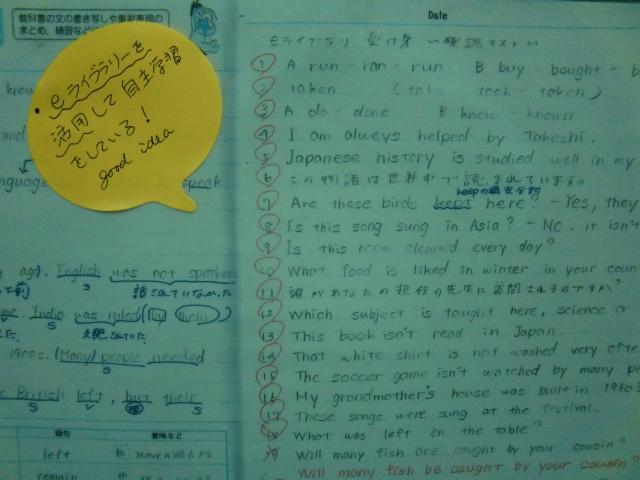 教科書の文の書き写しや重要表現の
まとめ、練習など
eライブラリーを
活用して自主学習
をしている!
good idea
know
and
speak
ago). English was not spoken
S
話されていなかった
India was ruled (by them)
S
支配されていた
1900s. (Many) people needed
S
British left, but their
S V 接 S
語句 意味など
left leaveの過去・過分
remain
Date
eライブラリ 受け身 確認テスト
① A run - ran - run B buy - bought - b
② taken (take - took - taken)
③ A do - done B know known
④ I am always helped by Takeshi.
⑤ Japanese history is studied well in my
⑥ この物語は世界中で読まれています。
keepの過去分詞
⑦ Are these birds kept here? - Yes, they
⑧ Is this song sung in Asia? - No. it isn't
⑨ Is this room cleaned every day?
⑩ What food is liked in winter in your coun
⑪ 誰があなたの担任の先生に訪問されるのですか?
⑫ Which subject is taught here, science or
⑬ This book isn't read in Japan.
⑭ That white shirt is not washed very ofte
⑮ The soccer game isn't watched by many pe
⑯ My grandmother's house was built in 1980s
⑰ These songs were sung at the festival.
⑱ What was left on the table?
⑲ Will many fish are caught by your cousin?
Will many fish be caught by your cousin?